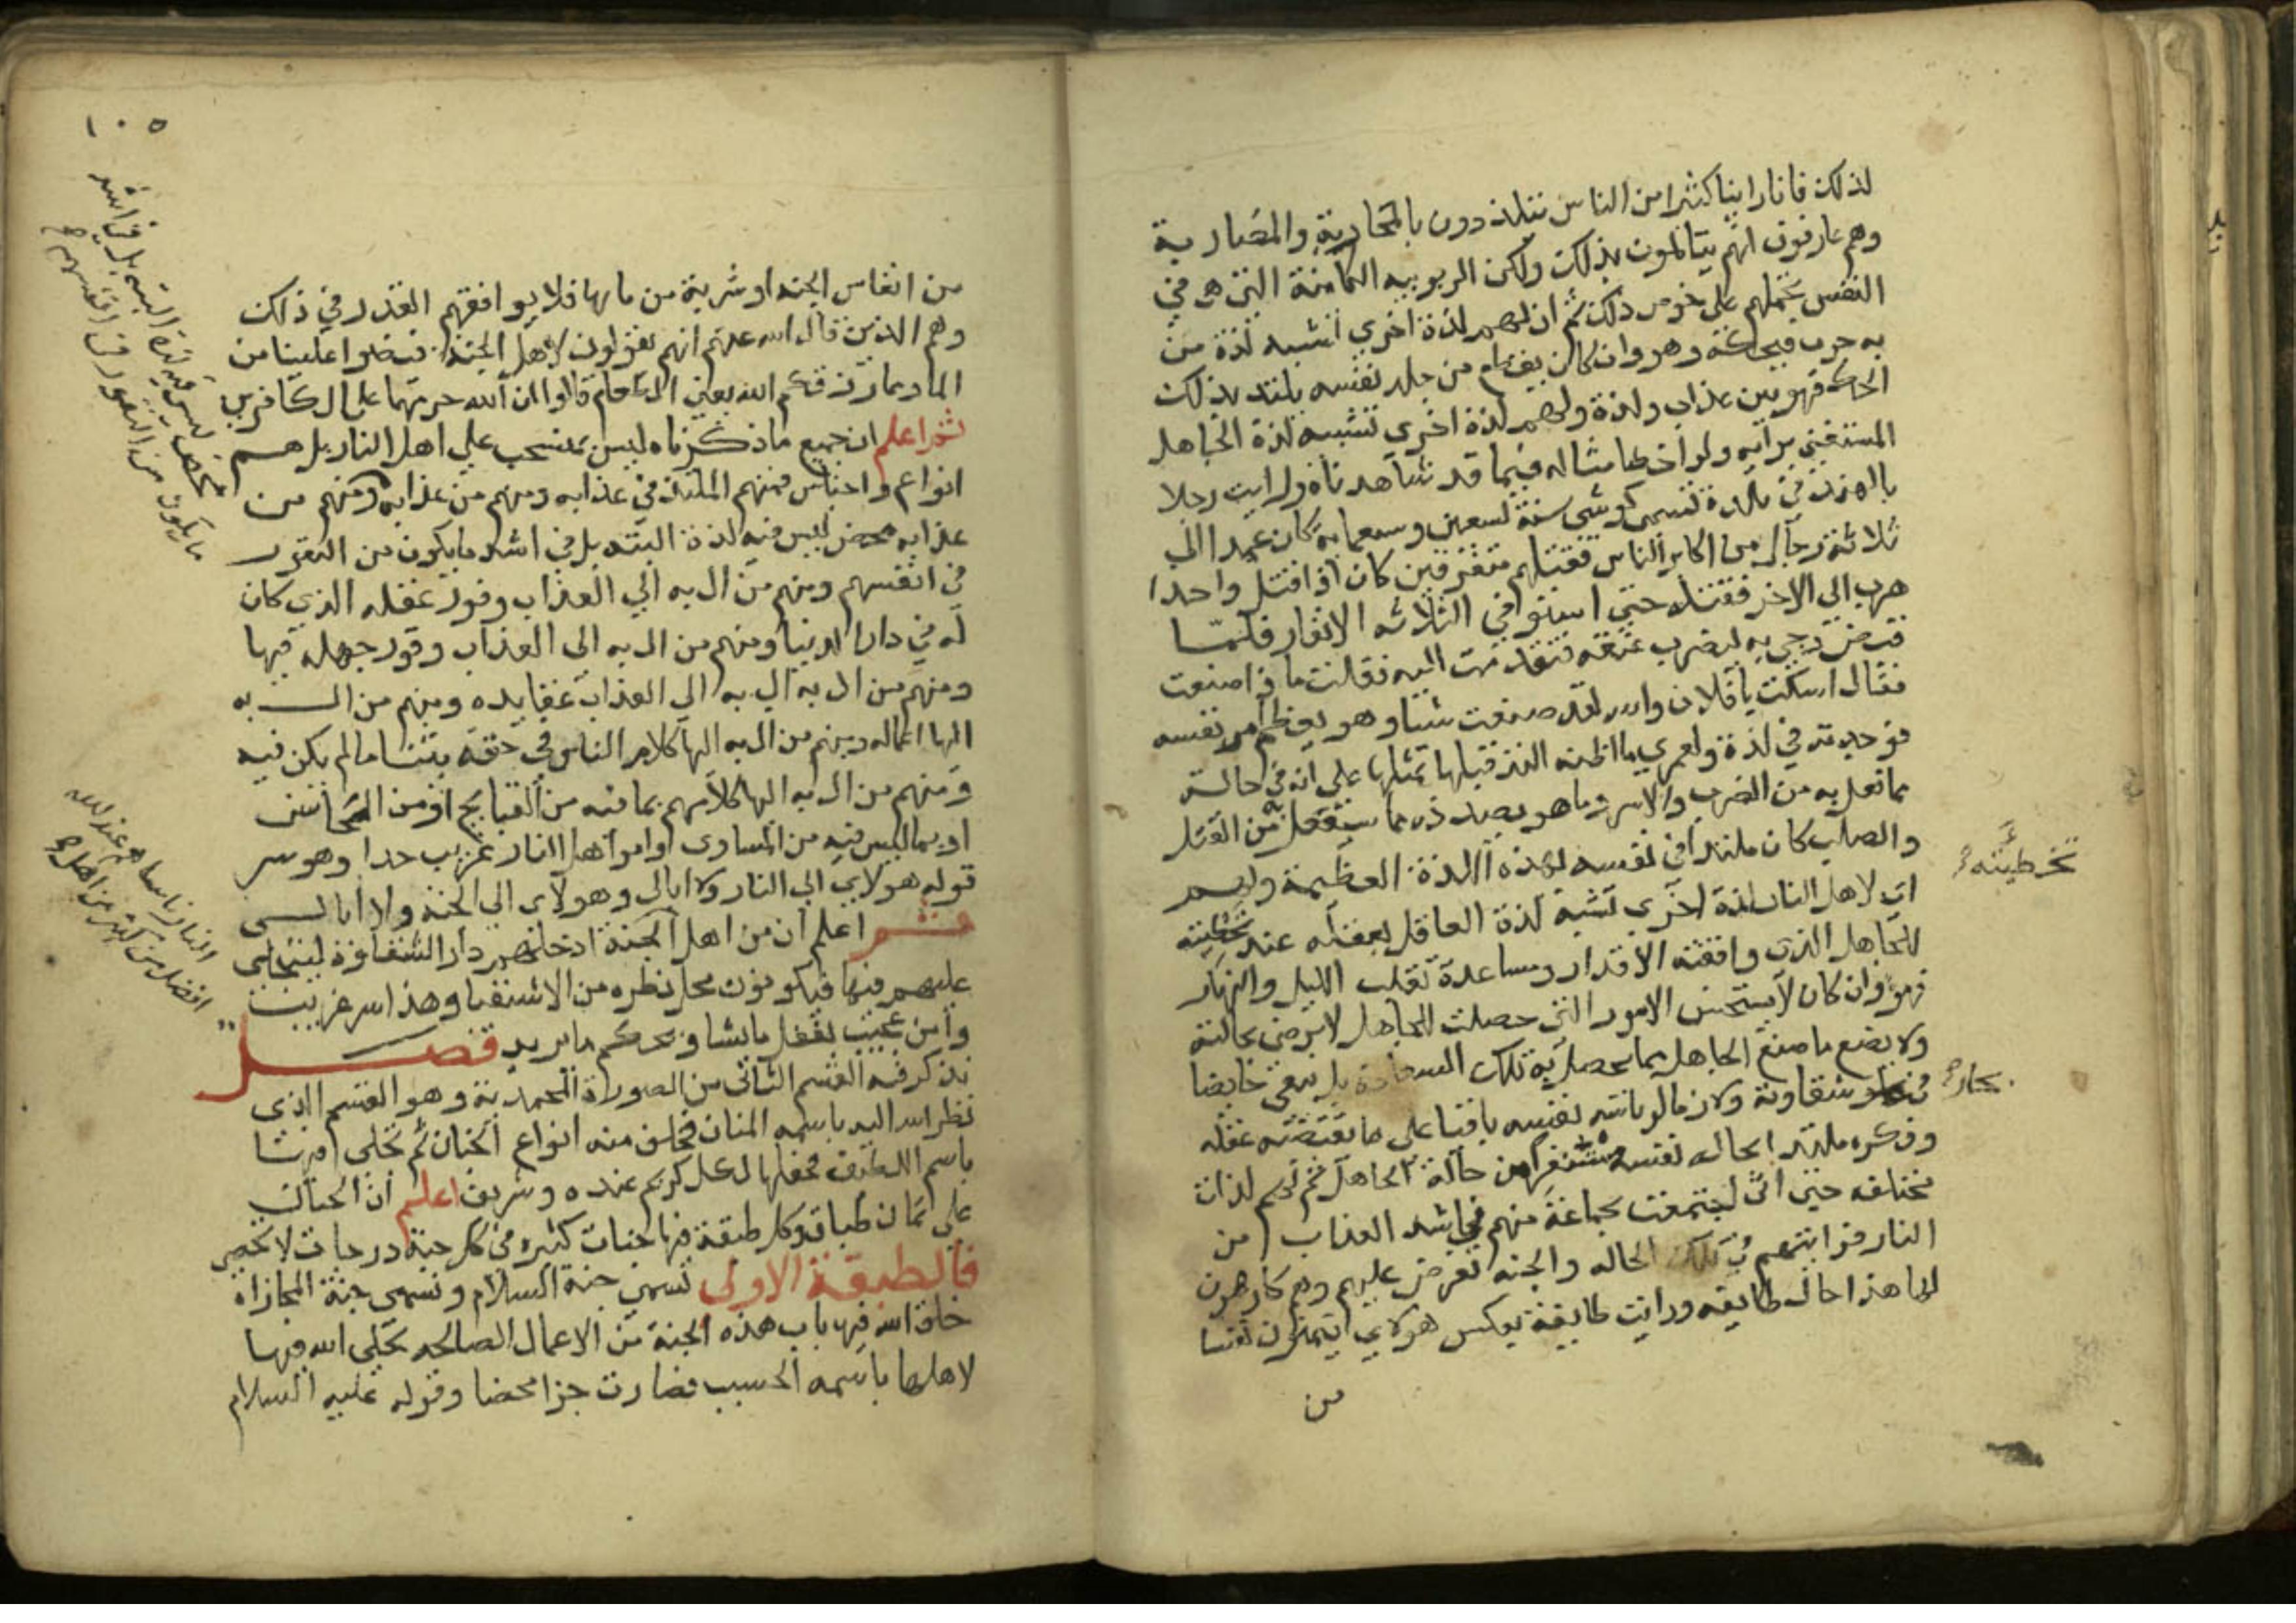 لذلك فانا راينا كثيرا من الناس يتلذذون بالمحاربة والمضاربة
وهم عارفون انهم يتالمون بذلك ولكن الربوبيه الكامنة التى هى في
النفس تحملهم على خوض ذلك ثم ان لهم لذة اخرى تشبه لذة من
به جرب فيحكه وهو وان كان يقطع من جلد نفسه يلتذ بذلك
الحك فهو بين عذاب ولذة ولهم لذة اخرى تشبه لذة الجاهل
المستغنى برايه ولو اخطا مثاله فيما قد شاهدناه وهو رايت رجلا
بالهند في بلدة تسمى كوشى سنة تسعين وسبعمايه كان عمد الى
ثلاثة رجال من اكابر الناس فقتلهم متفرقين كان اذا قتل واحدا
هرب الى الاخر فقتله حتى استوفي الثلاثه الانفار فلما
قبض وجي به ليضرب عنقه تقدمت اليه فقلت ماذا صنعت
فقال اسكت يا فلان والله لقد صنعت شيئا وهو يعظم امر نفسه
فوجدته في لذة ولعمرى ما اظنه التذ قبلها بمثلها على انه في حالة
مما فعل به من الضرب والاسر وما هو بصدده مما سيفعل به من القتل
والصلب كان ملتذا في نفسه بهذه اللذة العظيمة ولهم
اى لاهل النار لذة اخرى تشبه لذة العاقل بعقله عند تخطيته
للجاهل الذى وافقته الاقدار وساعدة تقلب الليل والنهار
فهو وان كان لا يستحسن الامور التى حصلت للجاهل لا يرضى بحالته
ولا يصنع ما صنع الجاهل بما يحصل به تلك السعادة بل يبقى خايضا
في بحار شقاوته ولازما لرياسة نفسه باقيا على ما يقتضيه عقله
وفكره ملتذ بحاله نفسه مستنفرا من حالة الجاهل ثم لهم لذات
مختلفه حتى انى اجتمعت بجماعة منهم في اشد العذاب من
النار فرايتهم في تلك الحاله والجنه تعرض عليهم وهم كارهون
لها هذا حال طايفه ورايت طايفة بعكس هولاي يتمنون نفسا
من
تخطيئته
بحار
١٠٥
من انفاس الجنه او شربة من مايها فلا يوافقهم القدر في ذلك
وهم الذين قال الله عنهم انهم يقولون لاهل الجنة افيضوا علينا من
الما او مما رزقكم الله يعنى الطعام قالوا ان الله حرمهما على الكافرين
ثم اعلم ان جميع ما ذكرناه ليس بمنسحب على اهل النار بل هم
انواع واجناس فمنهم المتلذذ في عذابه ومنهم من عذابه ومنهم من
عذابه محض ليس فيه لذة البتة بل في اشد ما يكون من النفور
في انفسهم ومنهم من ال به الي العذاب وفور عقله الذي كان
له في دار الدنيا ومنهم من ال به الى العذاب وفور جهله فيها
ومنهم من ال به الى العذاب عقايده ومنهم من ال به
اليها اعماله ومنهم من ال به اليها كلام الناس في حقه بثنا ما لم يكن فيه
ومنهم من ال به اليها كلامهم بما فيه من القبايح او من المحاسن
او بما ليس فيه من المساوى وامر اهل النار غريب جدا وهو سر
قوله هولاي الى النار ولا ابالى وهولاى الى الجنة ولا ابالى
ثم اعلم ان من اهل الجنة ادخلهم دار الشقاوة ليتجلى
عليهم فيها فيكونون محل نظره من الاشقيا وهذا سر غريب
وامر عجيب يفعل ما يشا ويحكم ما يريد فصل
نذكر فيه القسم الثانى من الصورة المحمدية وهو القسم الذى
نظر الله اليه باسمه المنان فخلق منه انواع الجنان ثم تجلى فيها
باسم اللطيف فجعلها لكل كريم عنده وشريف اعلم ان الجنان
على ثمان طباق وكل طبقة فيها جنات كثيره في كل جنة درجات لا تحصى
فالطبقة الاولى تسمى جنة السلام وتسمى جنة المجازاة
خلق الله فيها باب هذه الجنة من الاعمال الصالحه تجلى الله فيها
لاهلها باسمه الحسيب فصارت جزا محضا وقوله عليه السلام
محض ليس فيه لذة البتة بل في اشد
ما يكون من النفور في انفسهم
النار ناسا هم عند الله
افضل من كثير من اهل